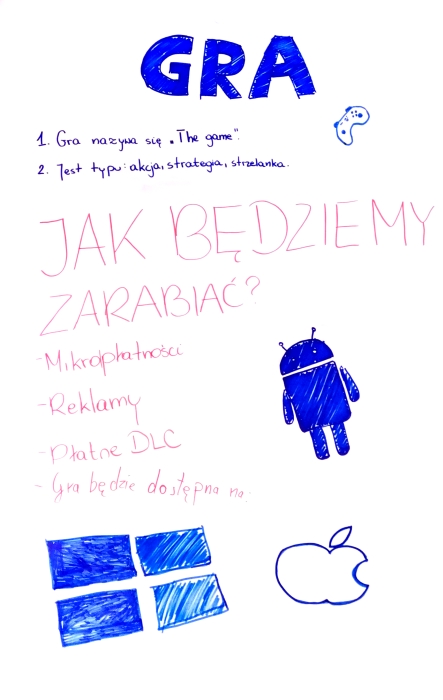 GRA
1. Gra nazywa się „The game”.
2. Jest typu: akcja, strategia, strzelanka.
JAK BĘDZIEMY
ZARABIAĆ?
- Mikropłatności
- Reklamy
- Płatne DLC
- Gra będzie dostępna na